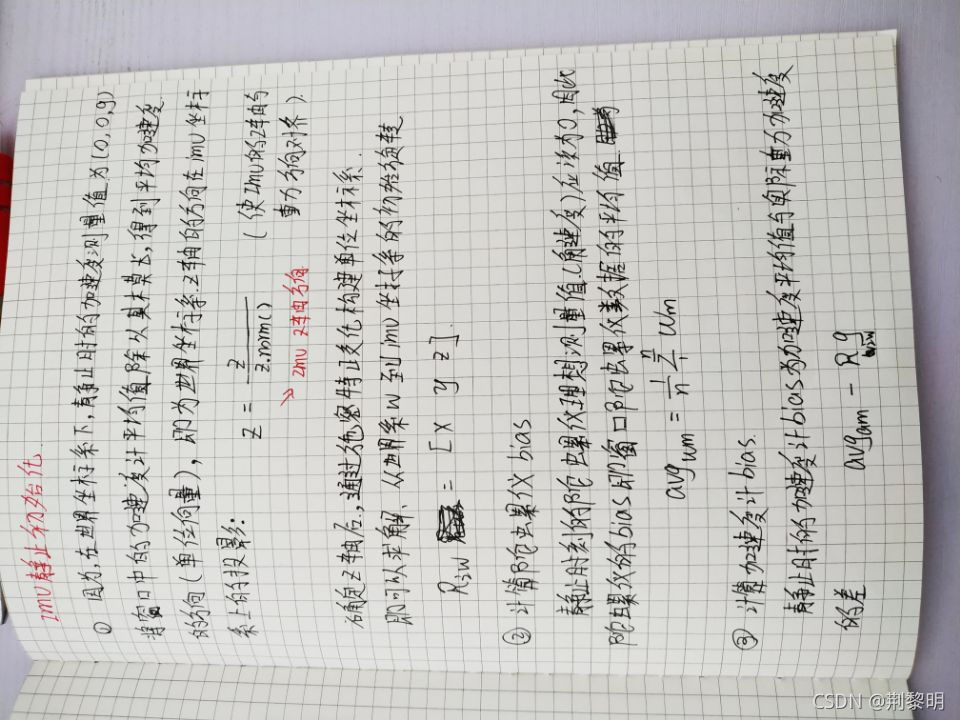 IMU静止初始化
① 因为,在世界坐标系下,静止时的加速度测量值为(0,0,g)
将窗口中的加速度计平均值,除以其模长,得到平均加速度
的方向(单位向量),即为世界坐标系Z轴的方向在imu坐标
系上的投影:
Z = z / z.norm() (使imu的Z轴与
重力方向对齐)
⇒ imu Z轴方向
确定Z轴后,通过施密特正交化构建单位坐标系.
即可以求解、从世界系W到imu坐标系的初始旋转
R_{iw} = [x y z].
② 计算陀螺仪bias
静止时刻的陀螺仪理想测量值(角速度)应该为0,因此
陀螺仪的bias即窗口陀螺仪数据的平均值
avg_{wm} = 1/n Σ^n w_m
③ 计算加速度计bias.
静止时的加速度计bias为加速度平均值与实际重力加速度
的差
avg_{am} - R_{iw} g
CSDN @荆黎明